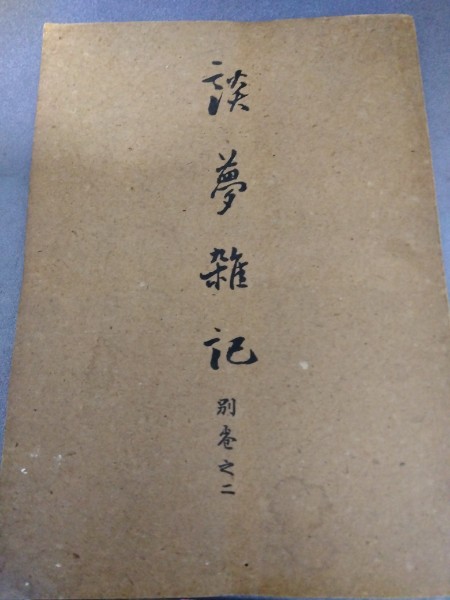 談夢雜記
別卷之二